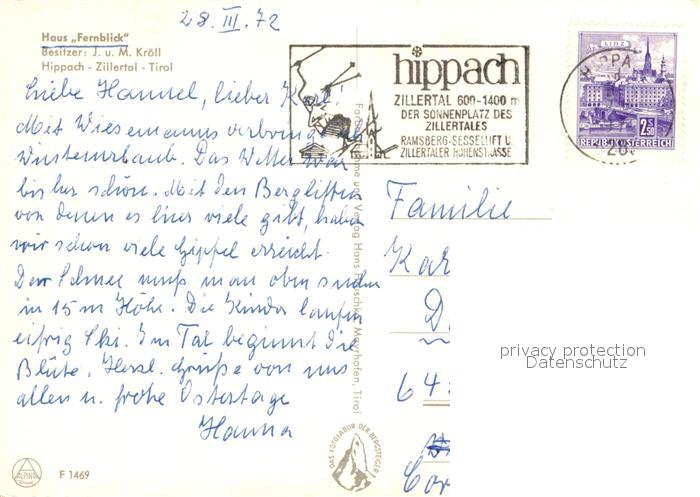 28. III. 72
Haus „Fernblick"
Besitzer: J. u. M. Kröll
Hippach - Zillertal - Tirol
Liebe Hannel, lieber Karl!
Mit Wiesemanns verbringe ich
Winterurlaub. Das Wetter war
bisher schön. Mit den Bergliften
von denen es hier viele gibt, haben
wir schon viele Gipfel erreicht.
Den Schnee muß man oben suchen
in 15 m Höhe. Die Kinder laufen
eifrig Ski. Im Tal beginnt die
Blüte. Herzl. Grüße von uns
allen u. frohe Ostertage
Hanna
F 1469
hippach
ZILLERTAL 600-1400 m
DER SONNENPLATZ DES
ZILLERTALES
RAMSBERG-SESSELLIFT U.
ZILLERTALER HÖHENSTRASSE
LINZ
2S50
REPUBLIK ÖSTERREICH
und Verlag Hans Mayrhofen, Tirol
DAS FOTOLABOR DER BERGSTEIGER
Familie
Kar
D
64
Cor
privacy protection
Datenschutz